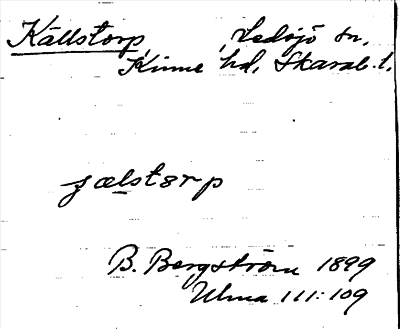 Källstorp, Ledsjö sn,
Kinne hd, Skarab. l.
sælstørp
B. Bergström 1899
Ulma 111:109